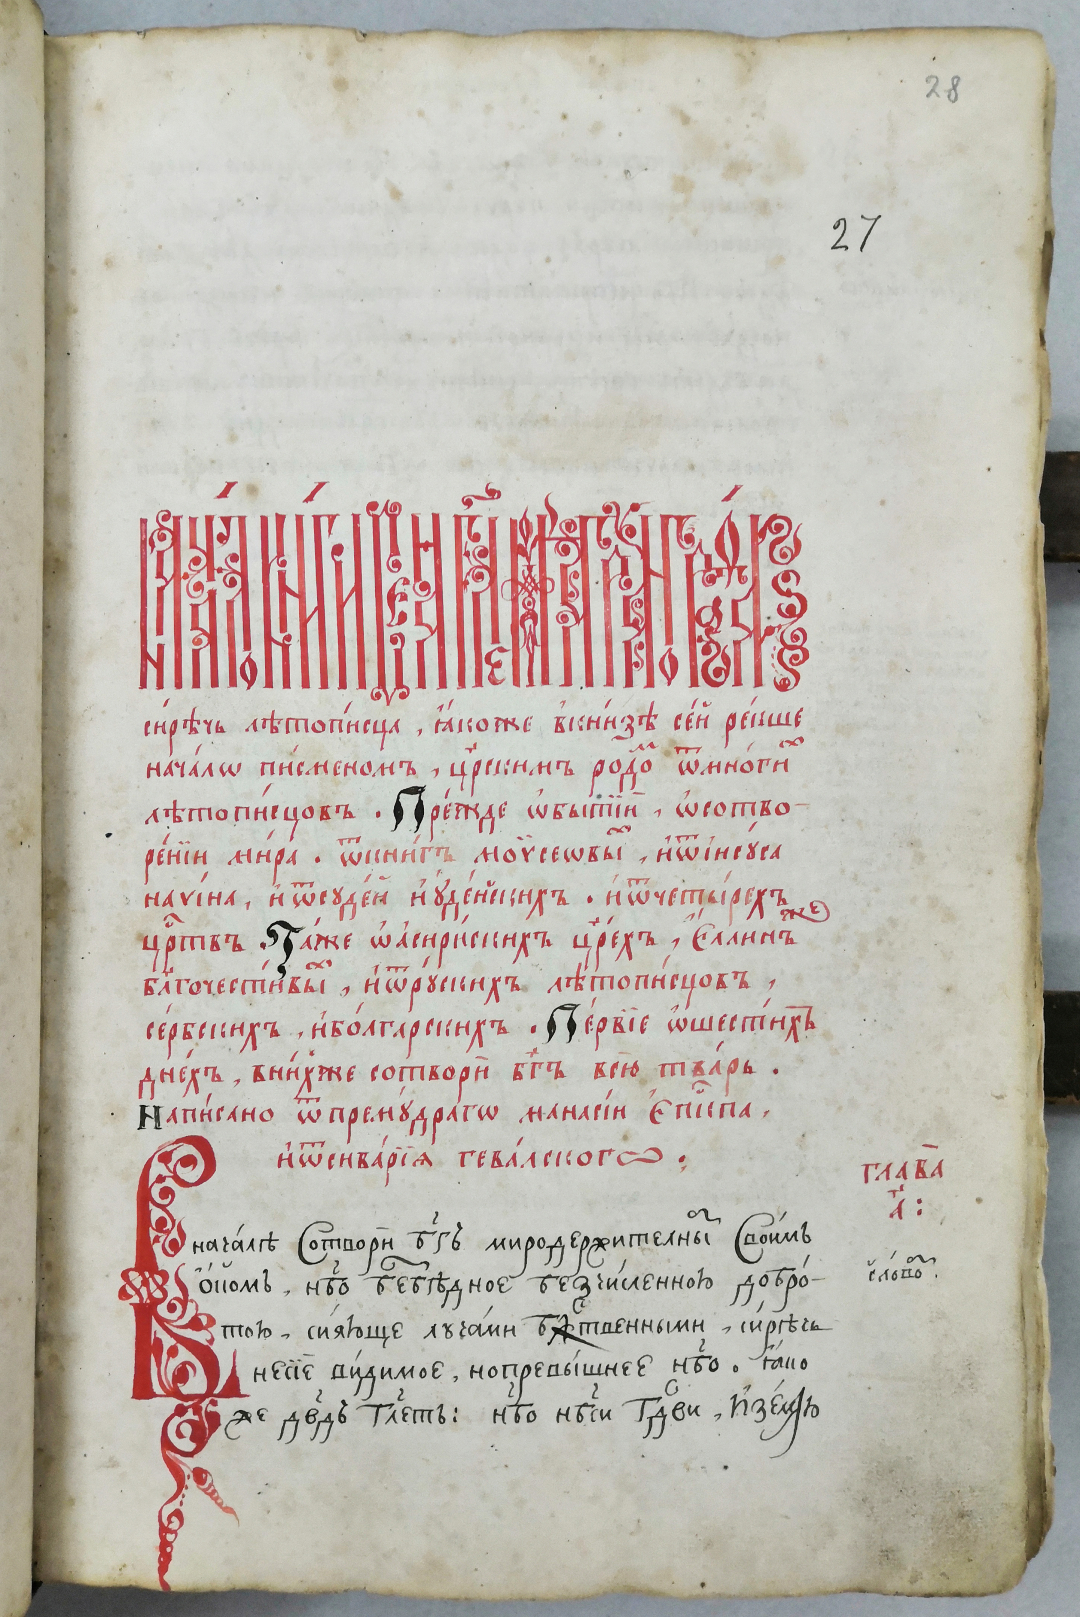 28
27
сирѣчь лѣтописца, ꙗкоже вкнизѣ сей рекше
началѡ писменомъ, црскимъ родо ѿмноги
лѣтописцовъ. Прежде ѡбытїи, ѡсотво-
ренїи мира. ѿкнигъ моѵсеовы, иѿіисуса
навина, иѿсудей иꙋдейскихъ. иѿчетырехъ
црствъ. Таже ѡасирискихъ црехъ, Еллинъ же
блгочестивы, иѿрускихъ лѣтописцовъ,
сербскихъ, иболгарскихъ. Первїе ѡшестихъ
днехъ, внихже сотвори бгъ всю тварь.
Написано ѿпремꙋдрагѡ манасіи Епскпа,
иѿенварїꙗ гевалскогѡ.
глава
а҃:
Вначалѣ Сотвори бгъ миродержителны Своимъ
слово.
нбо безчисленною добро-
тою, сиꙗюще лучами бжственными, сирѣчь
несїе видимое, нопревышнее нбо. ꙗко
же двдъ глетъ: нбо нбси гдви, Изелю